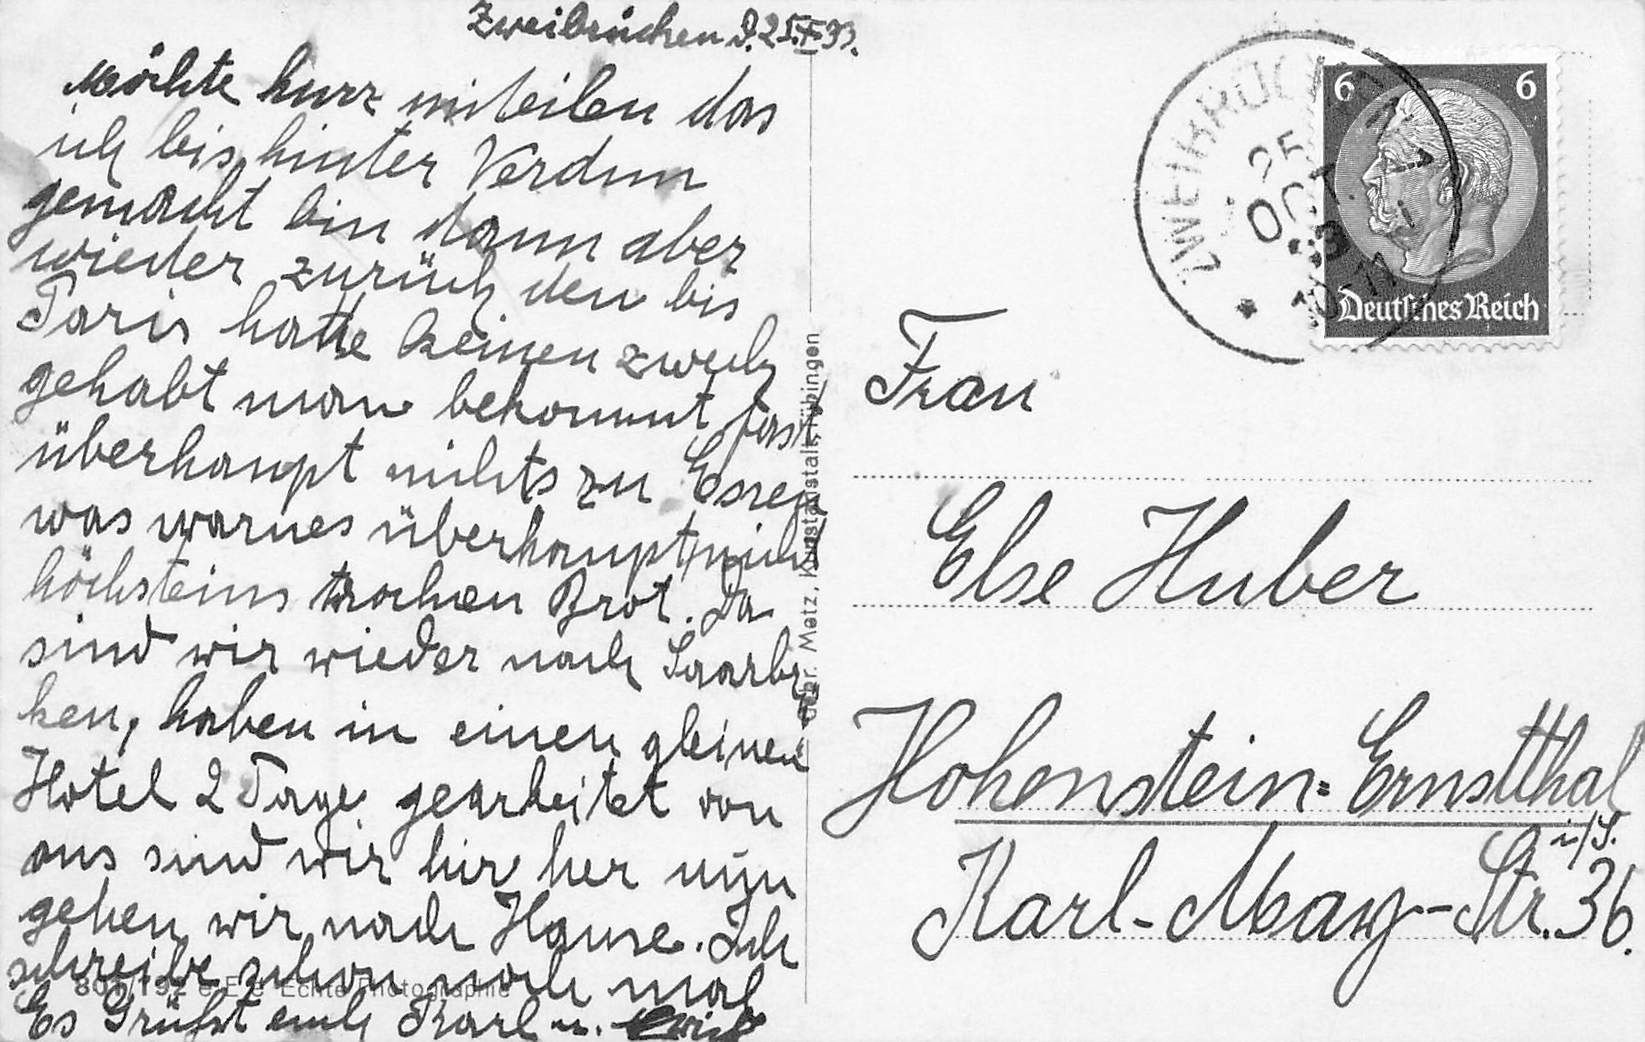 Zweibrücken d. 25.X.33.
Möchte kurz miteilen das
ich bis hinter Verdun
gemacht bin dann aber
wieder zurück den bis
Paris hatte keinen zweck
gehabt man bekommt fast
überhaupt nichts zu Essen
was warmes überhaupt nicht
höchsteins trocken Brot. Da
sind wir wieder nach Saarbr
ken, haben in einen gleinen
Hotel 2 Tage gearbeitet von
aus sind wir hir her nun
gehen wir nach Hause. Ich
schreibe schon noch mal
Es Grüßt euch Karl u.
801/192 e Echte Photographie
Gebr. Metz, Kunstanstalt, Tübingen
ZWEIBRÜCKEN
25
OCT
33
10-11
6 6
Deutsches Reich
Frau
Else Huber
Hohenstein=Ernstthal
i/S.
Karl-May-Str. 36.